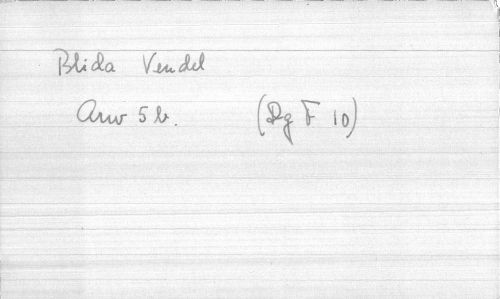 Blida Vendel
Arw 5 b. (Dg F 10)